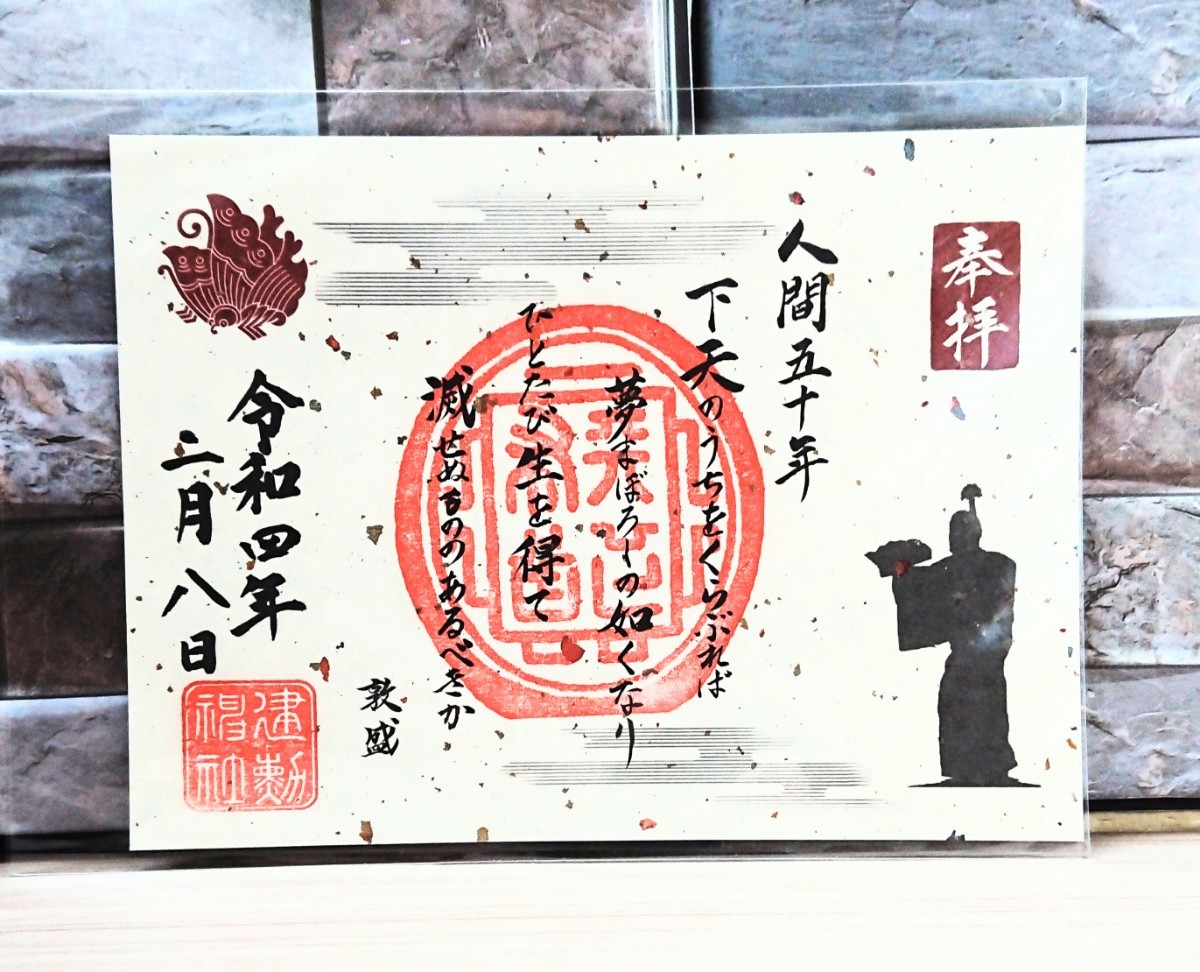 奉拝
人間五十年
下天のうちをくらぶれば
夢まぼろしの如くなり
ひとたび生を得て
滅せぬもののあるべきか
敦盛
令和四年
二月八日
建勲
神社